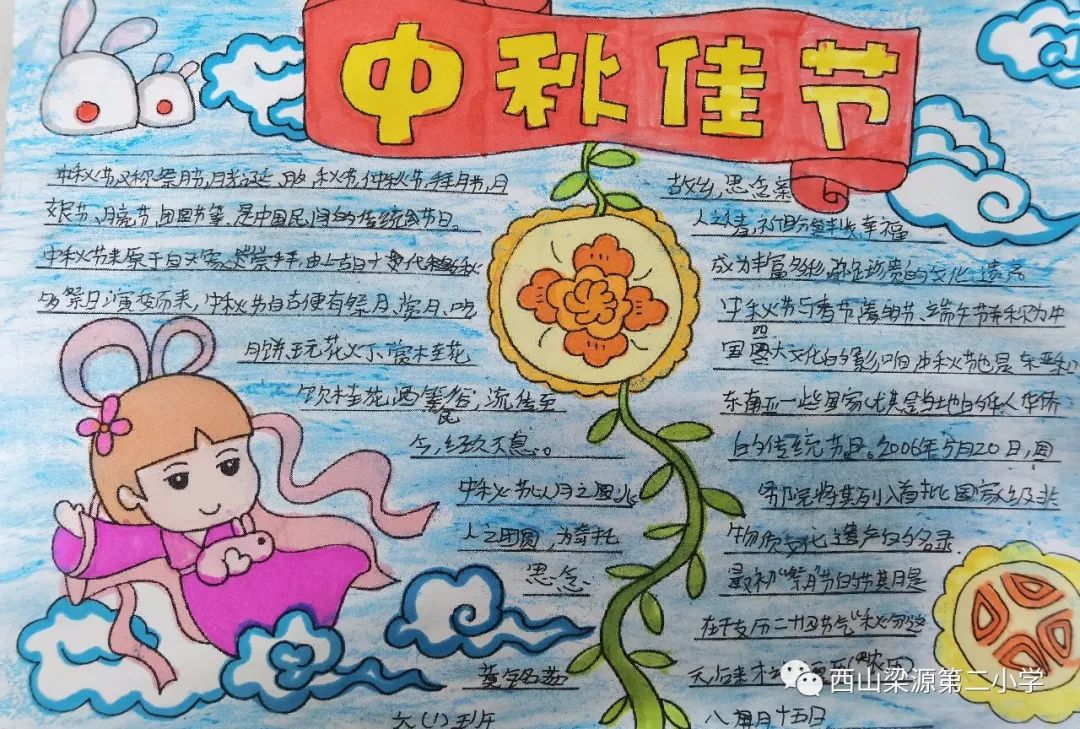 中秋佳节
中秋节又称祭月节,月光诞、月夕、秋节,仲秋节,拜月节,月
娘节、月亮节、团圆节等,是中国民间的传统节日。
中秋节来源于自天象崇拜,由上古时代秋
夕祭月演变而来,中秋节自古便有祭月、赏月、吃
月饼,玩花火丁、赏木圭花
饮桂花酒等民俗,流传至
今,经久不息。
中秋节以月之圆兆
人之团圆,为寄托
思念
故乡,思念亲
人之情,祈盼丰收幸福
成为丰富多彩,弥足珍贵的文化遗产
中秋节与春节,清明节、端午节并称为中
国四大文化的影响中秋节也是东亚和
东南亚一些国家尤其是当地的华人华侨
的传统节日。2006年5月20日,国
务院将其列入首批国家级非
物质文化遗产的名录.
最初“祭月节的节其月是
在干支历二十四节气“秋分这
天后来木
六(1)班
八月十五日
西山梁源第二小学